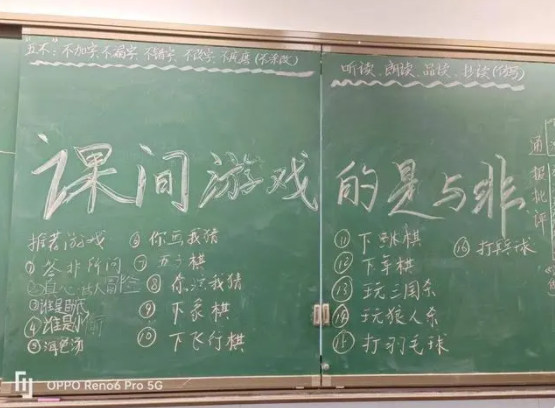 五不:不加字、不漏字、不错字、不
听读、朗读、品读、抄读(仿写)
课间游戏的是与非
通报批评
推荐游戏
①答非所问
②真心话大冒险
③谁是卧底
④谁是小
⑤海龟汤
⑥你画我猜
⑦五子棋
⑧你 我猜
⑨下象棋
⑩下飞行棋
⑪下跳棋
⑫下军棋
⑬玩三国杀
⑭玩狼人杀
⑮打羽毛球
⑯打乒乓球
OPPO Reno6 Pro 5G